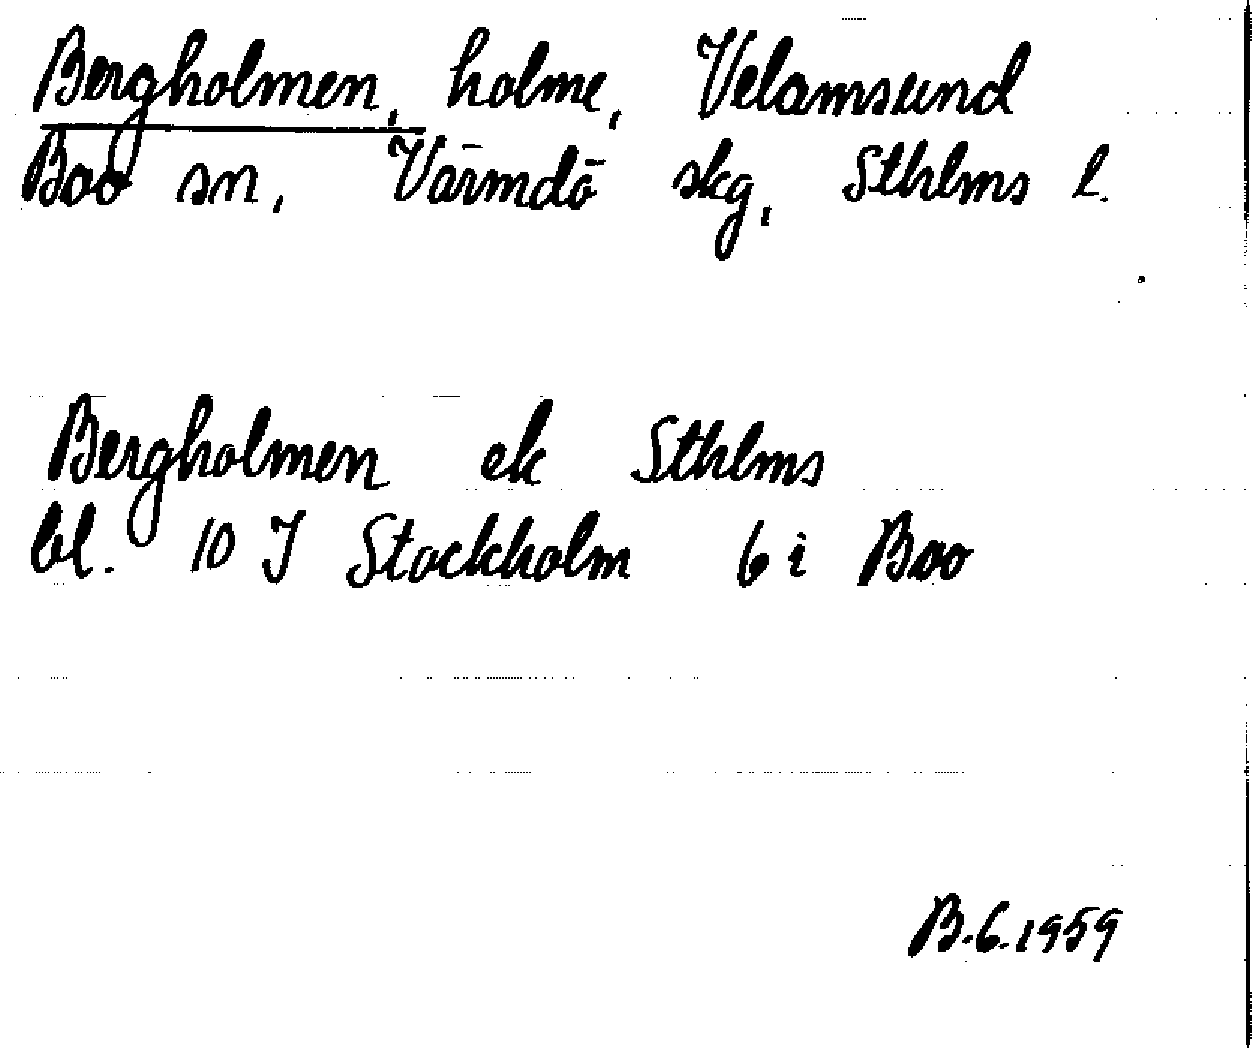 Bergholmen, holme, Velamsund
Boo sn, Värmdö skg, Sthlms l.
Bergholmen ek Sthlms
bl. 10 J Stockholm 6 i Boo
B.G.1959